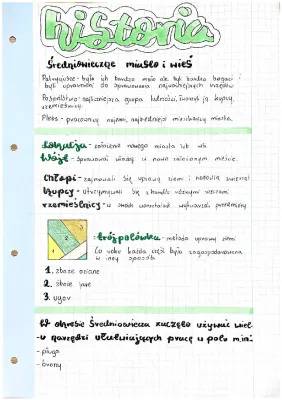 historia
Średniowieczne miasto i wieś
Patrycjusze - było ich bardzo mało ale byli bardzo bogaci i
byli uprawnieni do sprawowania najważniejszych urzędów
Pospólstwo - najliczniejsza grupa ludności, tworzyli ją kupcy,
rzemieślnicy
Plebs - pracownicy najemni, najbiedniejsi mieszkańcy miasta.
Lokacja - założenie nowego miasta lub wsi
Wójt - sprawował władzę w nowo założonym mieście.
Chłopi - zajmowali się uprawą ziemi i hodowlą zwierząt
Kupcy - utrzymywali się z handlu różnymi rzeczami
rzemieślnicy - w swoich warsztatach wytwarzali przedmioty
1
2
3
trójpolówka - metoda uprawy ziemi
Co roku każda część była zagospodarowana
w inny sposób
1. zboże ozime
2. zboże jare
3. ugór
W okresie Średniowiecza zaczęto używać wiel-
u narzędzi ułatwiających pracę w polu m.in:
- pługa
- brony